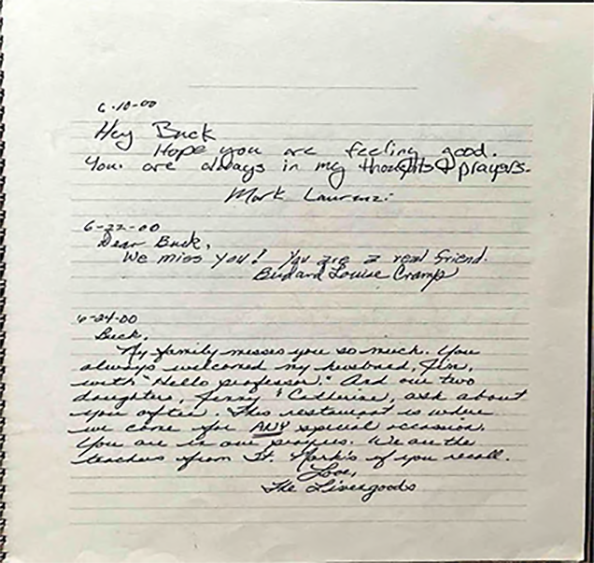 6-10-00
Hey Buck
Hope you are feeling good.
You are always in my thoughts & prayers.
Mark Laurenzi
6-22-00
Dear Buck,
We miss you! You are a real friend.
Bud and Louise Cramp
6-24-00
Buck,
My family misses you so much. You
always welcomed my husband, Jim,
with "Hello professor." And our two
daughters, Jenny & Catherine, ask about
you often. This restaurant is where
we come for ANY special occasion.
You are in our prayers. We are the
teachers from St. Mark's if you recall.
Love,
The Livengoods